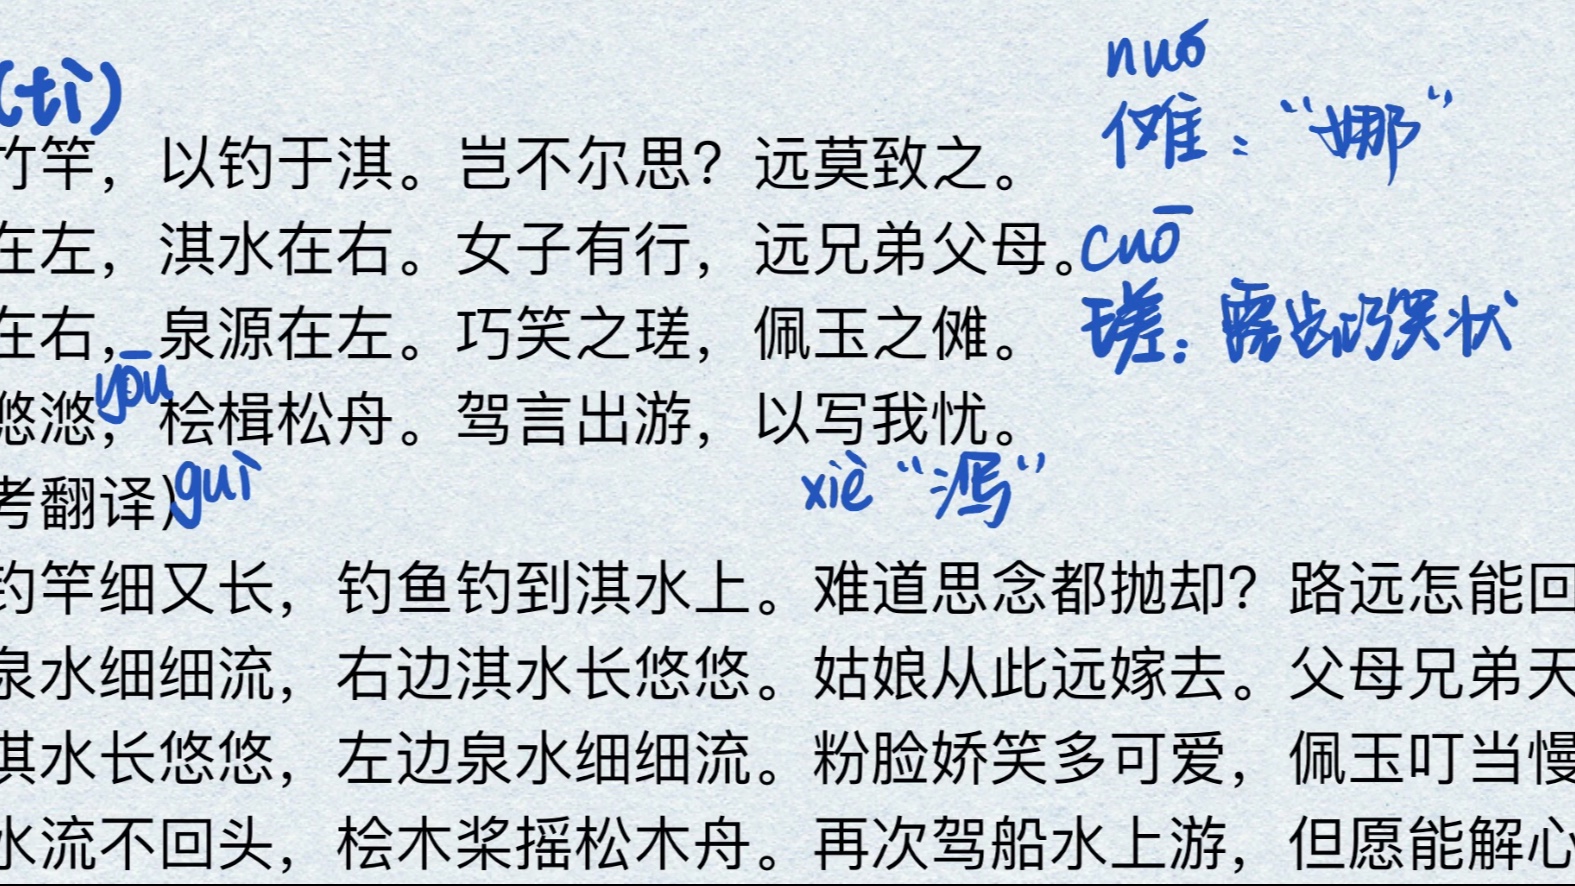 nuó
(tì)
傩："娜"
竹竿，以钓于淇。岂不尔思？远莫致之。
cuō
在左，淇水在右。女子有行，远兄弟父母。
瑳：露齿巧笑状
在右，泉源在左。巧笑之瑳，佩玉之傩。
yōu
悠滺，桧楫松舟。驾言出游，以写我忧。
guì
xiè "泻"
考翻译)
钓竿细又长，钓鱼钓到淇水上。难道思念都抛却？路远怎能回
泉水细细流，右边淇水长悠悠。姑娘从此远嫁去。父母兄弟天
淇水长悠悠，左边泉水细细流。粉脸娇笑多可爱，佩玉叮当慢
水流不回头，桧木桨摇松木舟。再次驾船水上游，但愿能解心